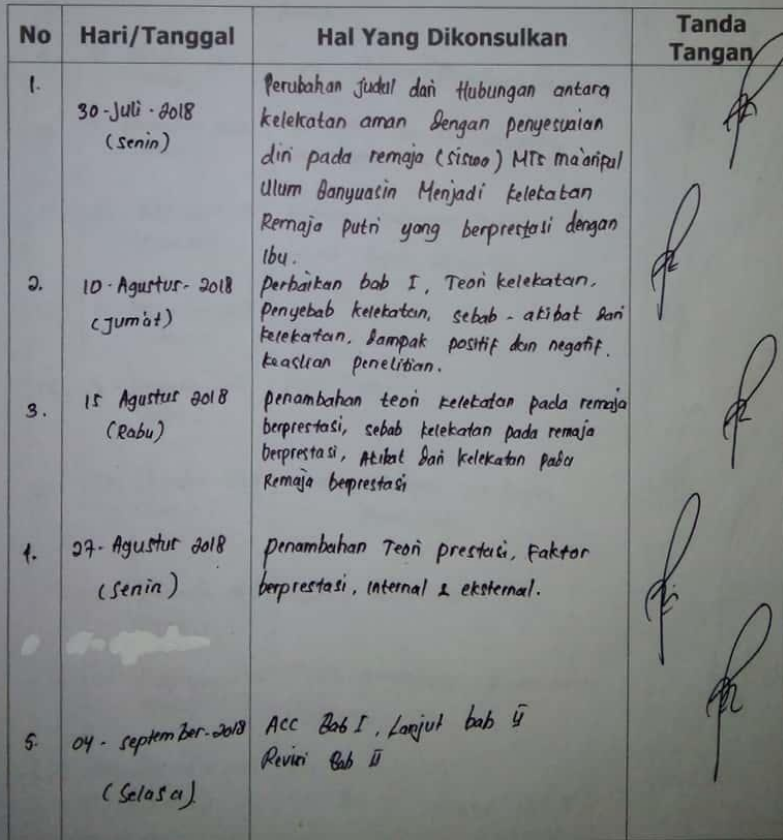 No Hari/Tanggal Hal Yang Dikonsulkan Tanda Tangan
1.
30-Juli-2018
(Senin)
Perubahan Judul dari Hubungan antara
kelekatan aman dengan penyesuaian
diri pada remaja (siswa) MTs ma'aripul
Ulum Banyuasin Menjadi kelekatan
Remaja putri yang berprestasi dengan
Ibu.
2.
10-Agustus-2018
(Jum'at)
perbaikan bab I, Teori kelekatan,
penyebab kelekatan, sebab-akibat dari
kelekatan, dampak positif dan negatif.
keaslian penelitian.
3.
15 Agustus 2018
(Rabu)
penambahan teori kelekatan pada remaja
berprestasi, sebab kelekatan pada remaja
berprestasi, Akibat dari kelekatan pada
Remaja berprestasi
4.
27-Agustus 2018
(Senin)
penambahan Teori prestasi, Faktor
berprestasi, internal & eksternal.
5.
04-september-2018
(Selasa)
Acc Bab I, Lanjut bab II
Revisi Bab II